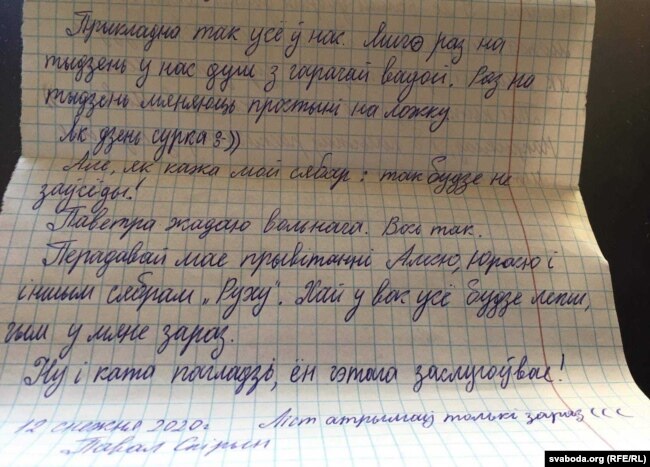 Прыкладна так усё ў нас. Яшчэ раз на
тыдзень у нас душ з гарачай вадой. Раз на
тыдзень мяняюць прасціны на ложку
Як дзень сурка :-))
Але, як кажа мой сябар: так будзе не
заўсёды!
Паветра жадаю вольнага. Вось так.
Перадавай мае прывітанні Алесю, Юрасю і
іншым сябрам „Руху". Хай у вас усё будзе лепш,
чым у мяне зараз.
Ну і ката пагладзь, ён гэтага заслугоўвае!
12 снежня 2020г Ліст атрымаў толькі зараз (((
Павал Спірын
svaboda.org (RFE/RL)